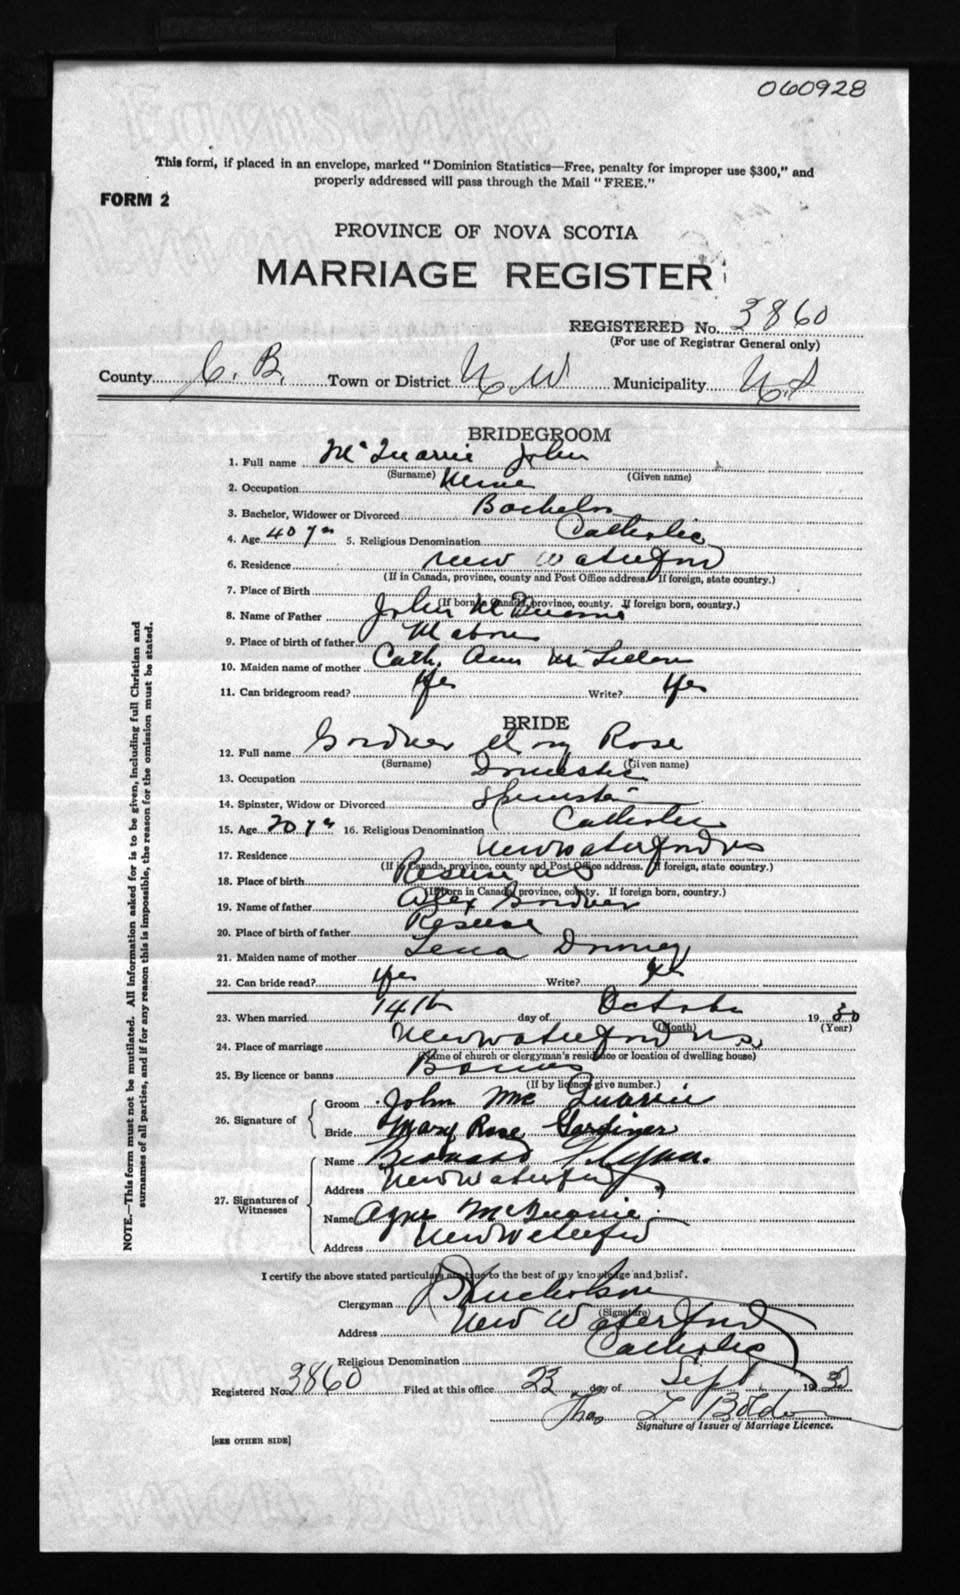 060928
This form, if placed in an envelope, marked "Dominion Statistics—Free, penalty for improper use $300," and
properly addressed will pass through the Mail "FREE."
FORM 2
PROVINCE OF NOVA SCOTIA
MARRIAGE REGISTER
REGISTERED No. 3860
(For use of Registrar General only)
County C. B. Town or District N. W Municipality N.S
BRIDEGROOM
1. Full name McQuarrie John
(Surname) (Given name)
2. Occupation
3. Bachelor, Widower or Divorced Bachelor
4. Age 40 yrs 5. Religious Denomination Catholic
6. Residence New Waterford
(If in Canada, province, county and Post Office address. If foreign, state country.)
7. Place of Birth
(If born in Canada, province, county. If foreign born, country.)
8. Name of Father John McQuarrie
9. Place of birth of father Mabou
10. Maiden name of mother Cath. Ann
11. Can bridegroom read? Yes Write? Yes
BRIDE
12. Full name Gordner Mary Rose
(Surname) (Given name)
13. Occupation Domestic
14. Spinster, Widow or Divorced Spinster
15. Age 20 yrs 16. Religious Denomination Catholic
17. Residence New Waterford NS
(If in Canada, province, county and Post Office address. If foreign, state country.)
18. Place of birth
(If born in Canada, province, county. If foreign born, country.)
19. Name of father Alex Gordner
20. Place of birth of father
21. Maiden name of mother Lena
22. Can bride read? Yes Write?
23. When married 14th day of October 1930
(Month) (Year)
24. Place of marriage New Waterford N.S.
(Name of church or clergyman's residence or location of dwelling house)
25. By licence or banns Banns
(If by licence give number.)
26. Signature of Groom John McQuarrie
Bride Mary Rose Gardiner
27. Signatures of Witnesses Name Bernard Flynn.
Address New Waterford
Name Agnes McQuarrie
Address New Waterford
I certify the above stated particulars are true to the best of my knowledge and belief.
Clergyman Nicholson
(Signature)
Address New Waterford
Religious Denomination Catholic
Registered No. 3860 Filed at this office 23 day of Sept. 193
Thos
Signature of Issuer of Marriage Licence.
[SEE OTHER SIDE]
NOTE.—This form must not be mutilated. All information asked for is to be given, including full Christian and
surnames of all parties, and if for any reason this is impossible, the reason for the omission must be stated.